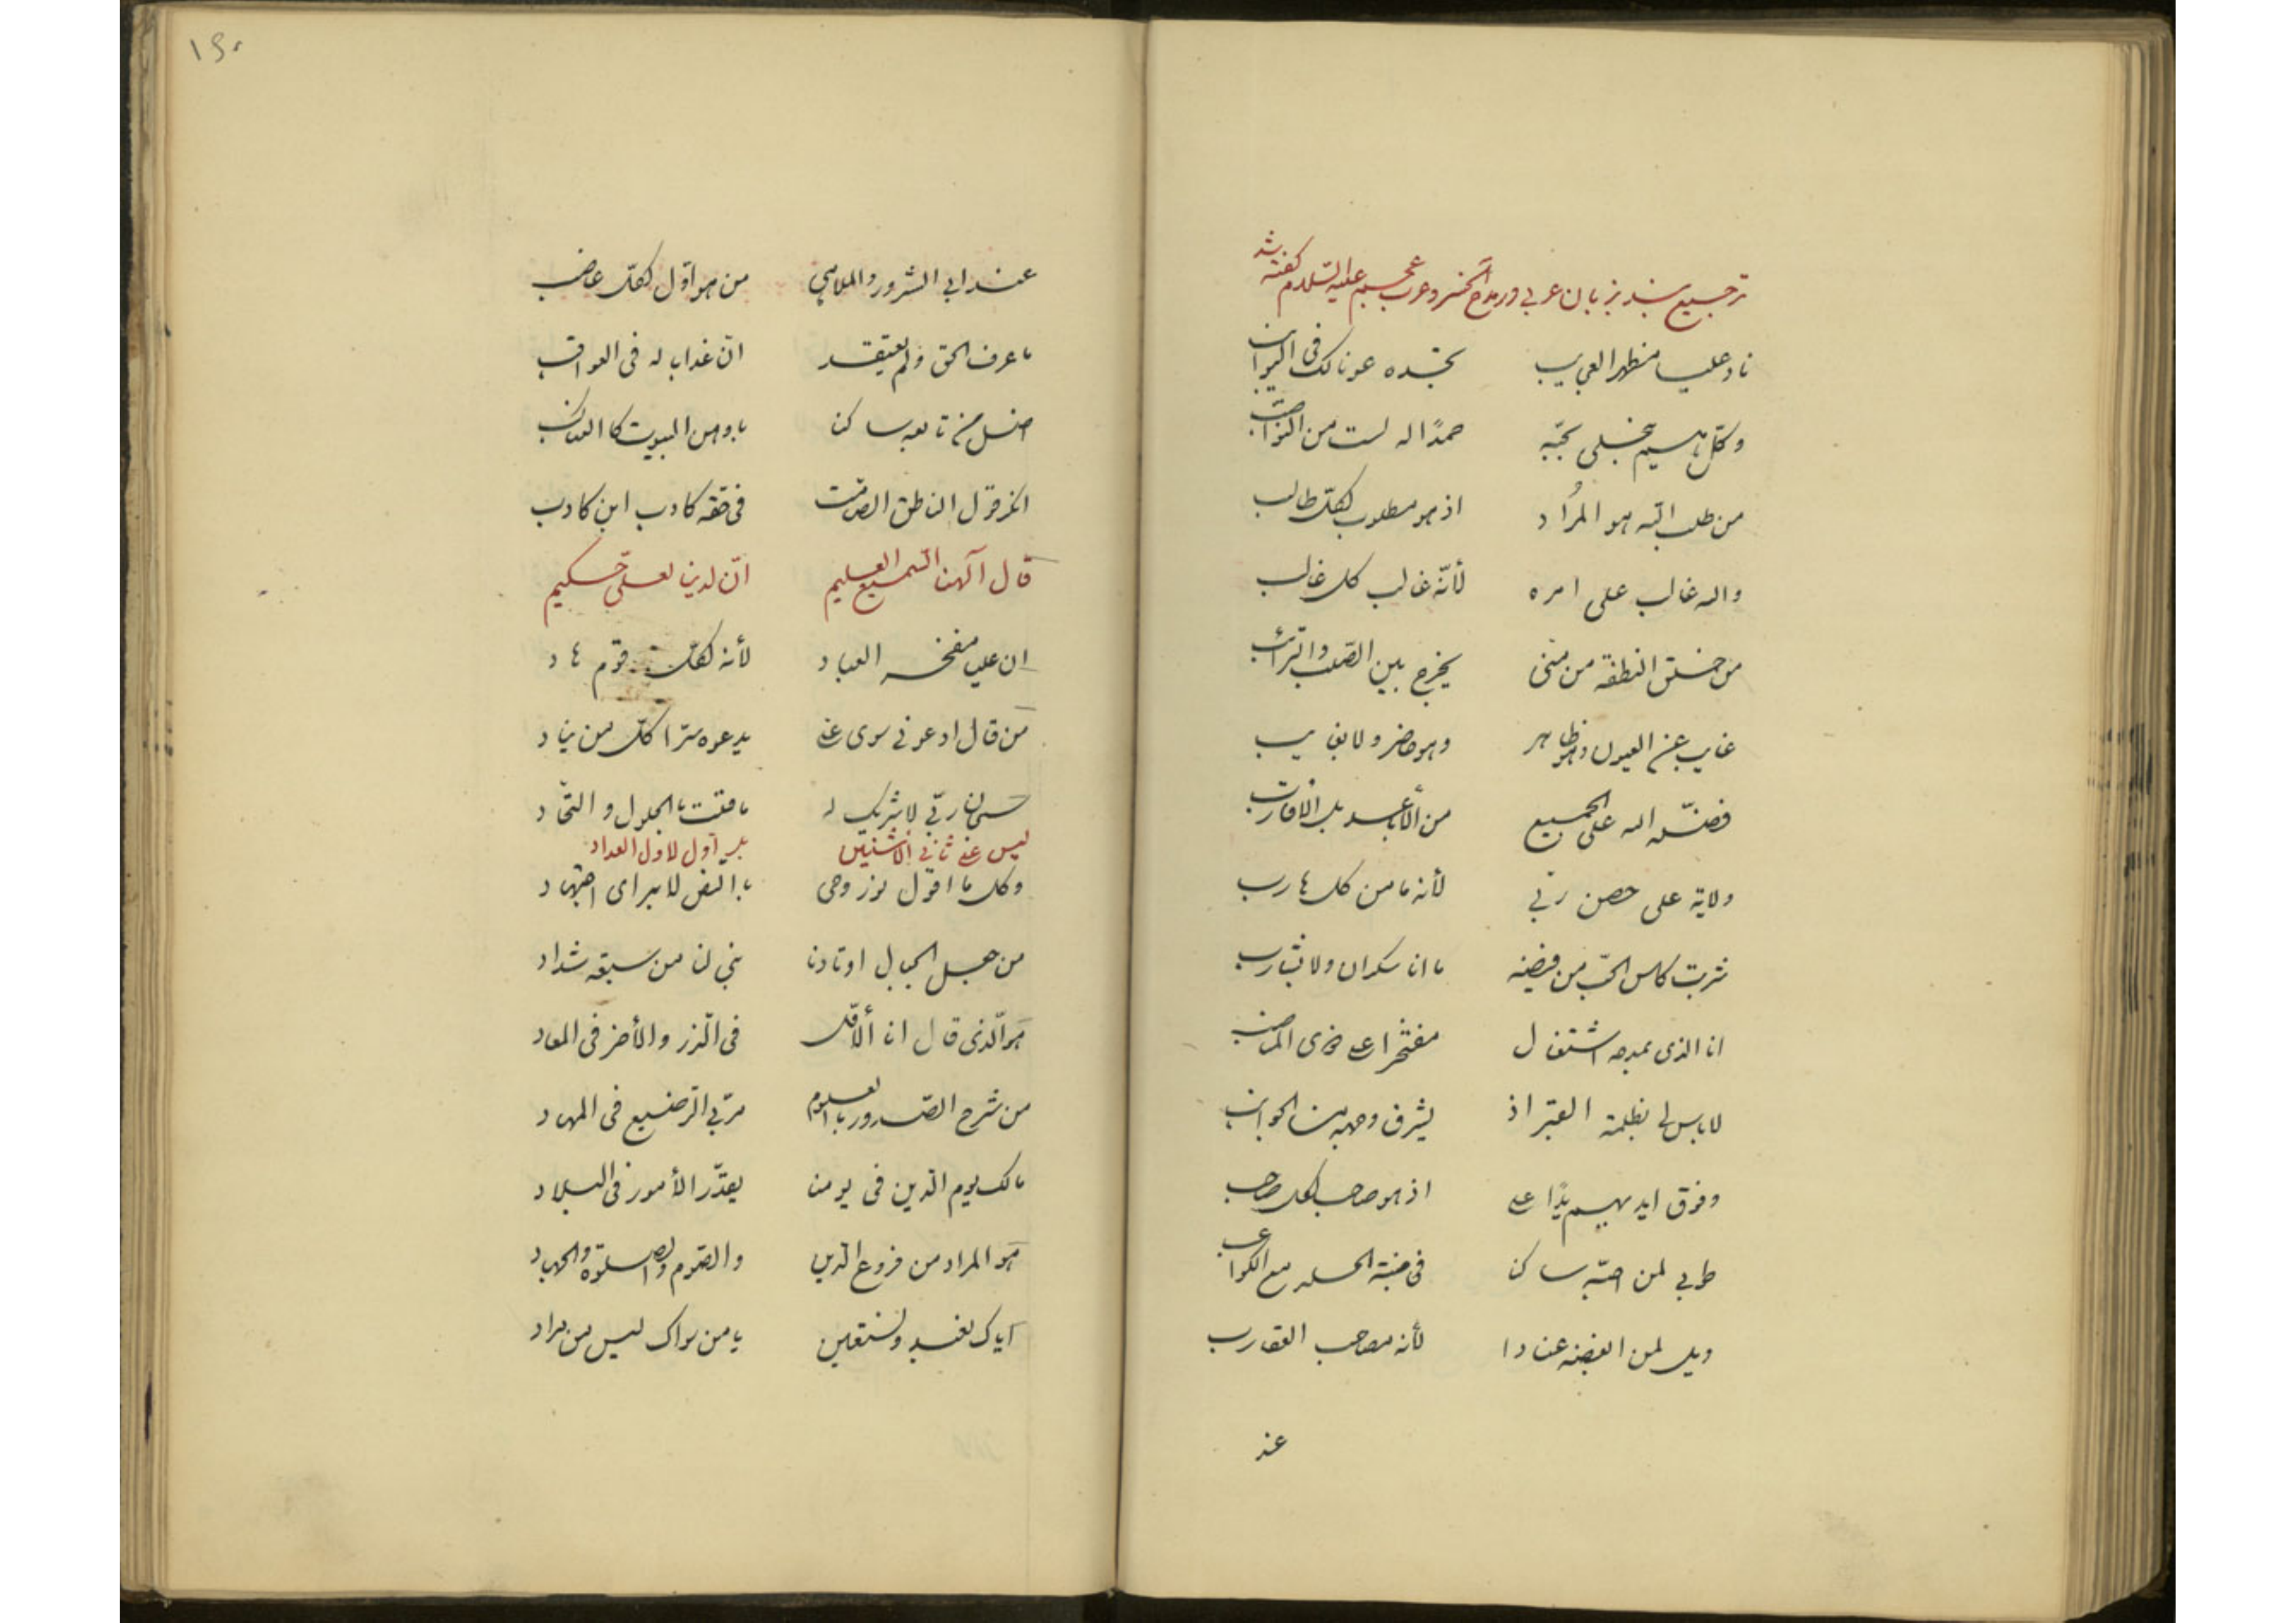 ترجیع بند بزبان عربی در مدح خسرو عرب و عجم علیه السلام گفته شد
ناد علیا مظهر العجایب تجده عونا لک فی النوائب
وکل هم سینجلی بحبه حمدًا له لست من النواصب
من طلب اللّه هو المُراد اذ هو مطلوب لکلّ طالب
والله غالب علی امره لأنّه غالب کل غالب
من خلق النطفة من منی یخرج بین الصّلب والترائب
غایب عن العیون وهو ظاهر وهو حاضر ولا بغایب
فضّله الله علی الجمیع من الأباعد بل الاقارب
ولایة علی حصن ربّی لأنه مامن کل هارب
شربت کاس الحبّ من فیضه ما انا سکران ولا بشارب
انا الذی بمدحه اشتغال مفتخرا علی المناصب
لاباس لی بظلمة القبر اذ یشرق وجهه من الجوانب
وفوق ایدیهم یدًا علی اذ هو صاحب لکل صاحب
طوبی لمن احبّه ساکن فی الجنة مع الکواعب
ویل لمن ابغضه عنادا لأنه مصاحب العقارب
عند
۱۶۰
عند ابی الشرور والملاهی من هو اوّل لکلّ غاصب
ما عرف الحق ولم یعتقد انّ عذابا له فی العواقب
من تابعه ساکن باوهن البیوت کالعناکب
انکر قول الناطق الصامت فی حقه کاذب ابن کاذب
قال آلهنا السمیع العلیم انّ لدینا لعلیّ حکیم
ان علیا مفخر العباد لأنه لکلّ قوم هاد
من قال ادعونی سوی علی یدعوه سرّا کلّ من یناد
سبحان ربّی لا شریک له ما قلت بالحلول و التّحاد
لیس علی ثانی الاثنین بل اول لاول العداد
وکل ما اقول نور وحی بالنص لا برای اجتهاد
من جعل الجبال اوتادنا بنی لنا من سبعة شداد
هو الّذی قال انا ألاوّل فی الذر والأخر فی المعاد
من شرح الصّدور بالعلوم مربّی الرّضیع فی المهاد
مالک یوم الدین فی یومنا یقدّر الأمور فی البلاد
هو المراد من فروع الدین والصّوم والصلوة والجهاد
ایاک نعبد ونستعین یا من سواک لیس من مراد